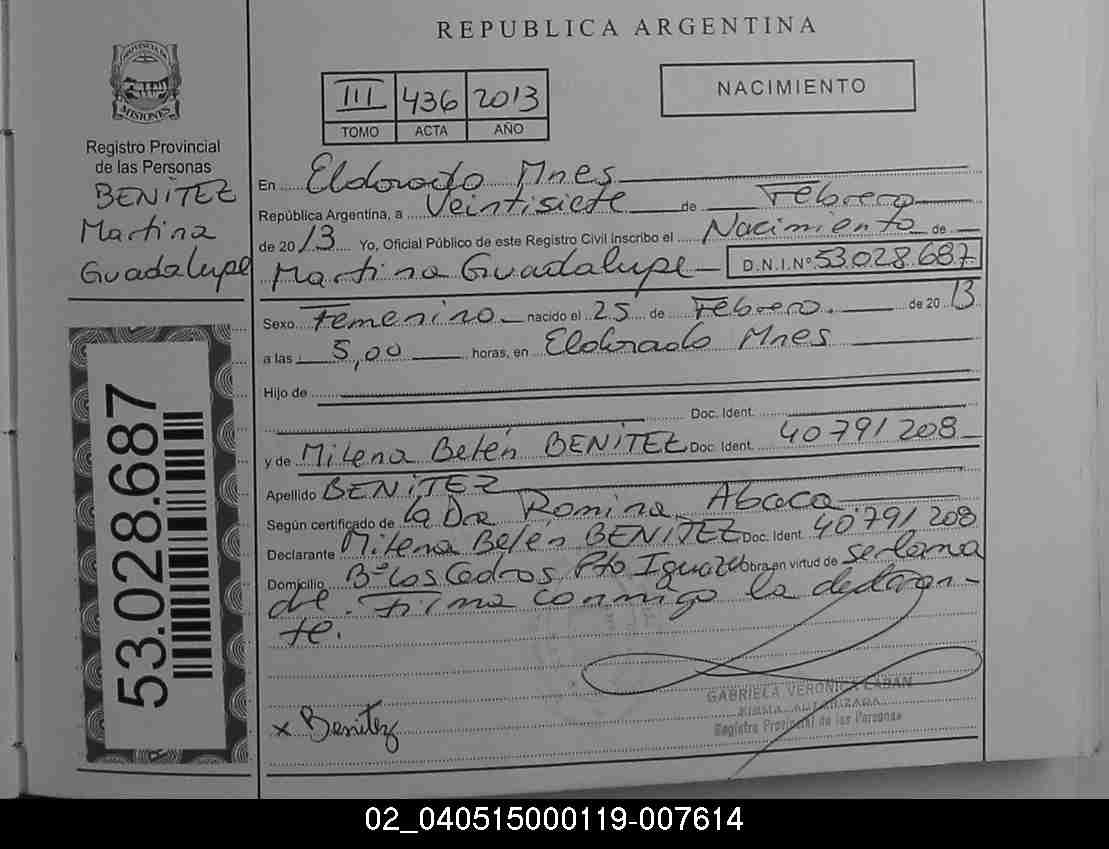 REPUBLICA ARGENTINA
PROVINCIA DE
MISIONES
Registro Provincial
de las Personas
BENÍTEZ
Martina
Guadalupe
53.028.687
III 436 2013
TOMO ACTA AÑO
NACIMIENTO
En Eldorado Mnes
República Argentina, a Veintisiete de Febrero
de 2013 Yo, Oficial Público de este Registro Civil inscribo el Nacimiento de
Martina Guadalupe D.N.I.Nº 53.028.687
Sexo Femenino nacido el 25 de Febrero de 2013
a las 5,00 horas, en Eldorado Mnes
Hijo de
Doc. Ident.
y de Milena Belén BENÍTEZ Doc. Ident. 40791208
Apellido BENÍTEZ
Según certificado de la Dra Romina Abaca
Declarante Milena Belén BENÍTEZ Doc. Ident. 40791208
Domicilio Bº Los Cedros Pto Iguazú obra en virtud de ser la ma
dre. Firma conmigo la declaran-
te.
x Benitez
GABRIELA VERONICA LABAN
FIRMA AUTORIZADA
Registro Provincial de las Personas
02_040515000119-007614